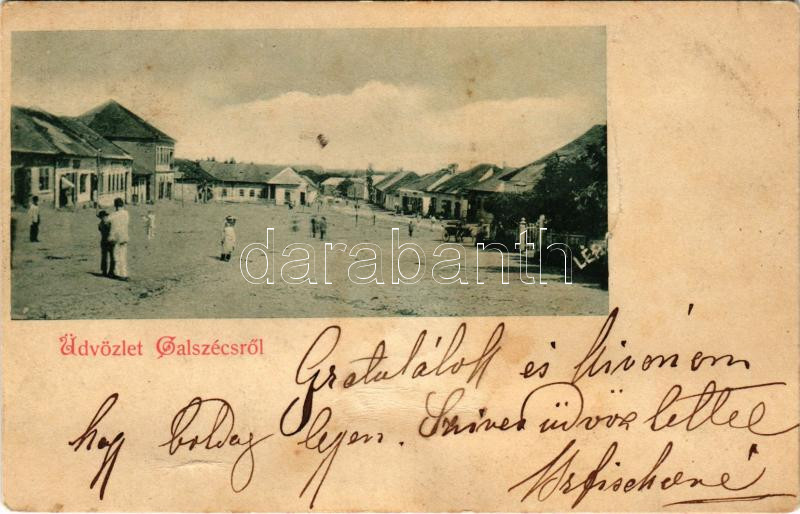 darabanth
LÉP
Üdvözlet Galszécsről
Gratulálok és kivánom
hogy boldog legyen. Szives üdvözlettel